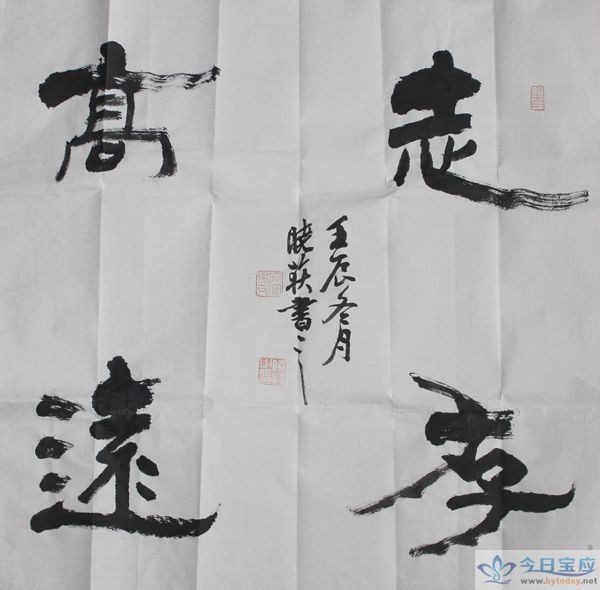 志存
高遠
壬辰冬月
晓荻書之
今日宝应
www.bytoday.net